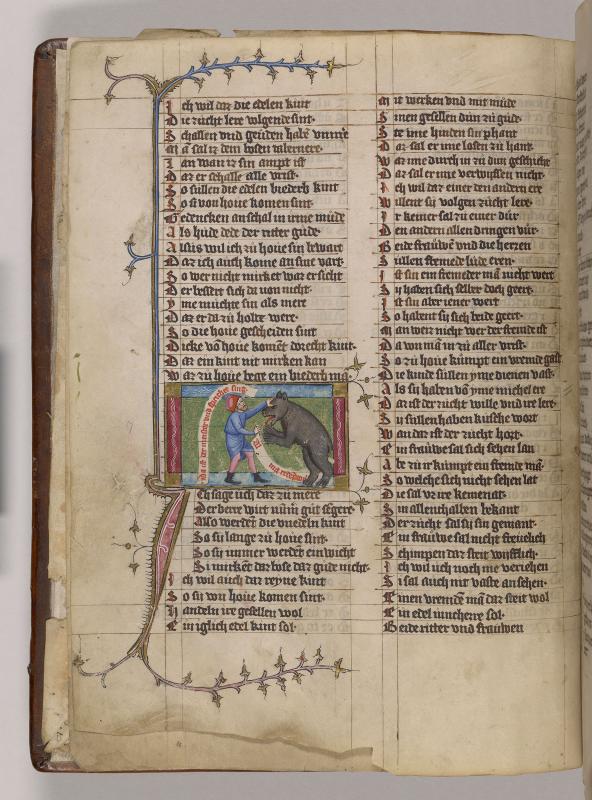 Ich wil daz die edelen kint
Die zucht lere volgende sint
Schallen vnd geuden habe vnmere
Man sal iz dem bosen
Ian wan iz sin ampt ist
Daz er schalle alle vrist
So sullen die edelen biederb kint
So si von houe komen sint
Gedencken an schal in irme mude
Als hude dede der ritter gude
Alsus wil ich zu houe sin bewart
Daz ich auch kome an sine vart
So wer nicht mirket waz er sicht
Der bessert sich da uon nicht
yme muchte sin als mere
Daz er da zu holtze were
So die houe gescheiden sint
Dicke von houe komet dorecht kint
Daz ein kint nit mirken kan
Waz zu houe bege ein biederb man
da ich der meister vnd spricher sint
Ich sage uch daz zu mere
Der bere wirt nimer gut senger
Also werdet die vnedeln kint
So si lange zu houe sint
So si ummer werdet ein wicht
Si mirket daz bose daz gude nicht
Ich wil auch daz reyne kint
So si von houe komen sint
Handeln ire gesellen wol
Ein iglich edel kint sol
Mit werken vnd mit mude
Sinen gesellen dun zu gude
Ste ime hinden sin phant
Daz sal er ime losen zu hant
Waz ime durch in zu dun geschicht
Daz sal er ime verwissen nicht
Ich wil daz einer den andern ere
Willent si volgen zucht lere
Ir keiner sal zu einer dur
Den andern allen dringen vur
Beide frauwen vnd die herren
Sullen fremede lude eren
Ist sin ein fremeder man nicht wert
Sy haben sich selber doch geert
Ist sin aber iener wert
So habent sy sich beide geert
Man weiz nicht wer der fremde ist
Da von man in zu aller vrist
So zu houe kumpt ein vremde gast
Die kinde sullen yme dienen vast
Als sy haben von yme michel ere
Daz ist der zucht wille vnd ire lere
Sy sullen haben kusche wort
Wan daz ist der zucht hort
Ein frauwe sal sich sehen lan
Abe zu ir kumpt ein fremde man
So welche sich nicht sehen lat
Die sal vz ire kemenat
Sin allenthalben bekant
Der zucht sal sy sin gemant
Ein frauwe sal nicht freuelich
Schimpen daz steit wyfflich
Ich wil uch noch me veriehen
Si sal auch nit vaste an sehen
Einen vremde man daz steit wol
Ein edel iuncherre sol
Beide ritter vnd frauwen